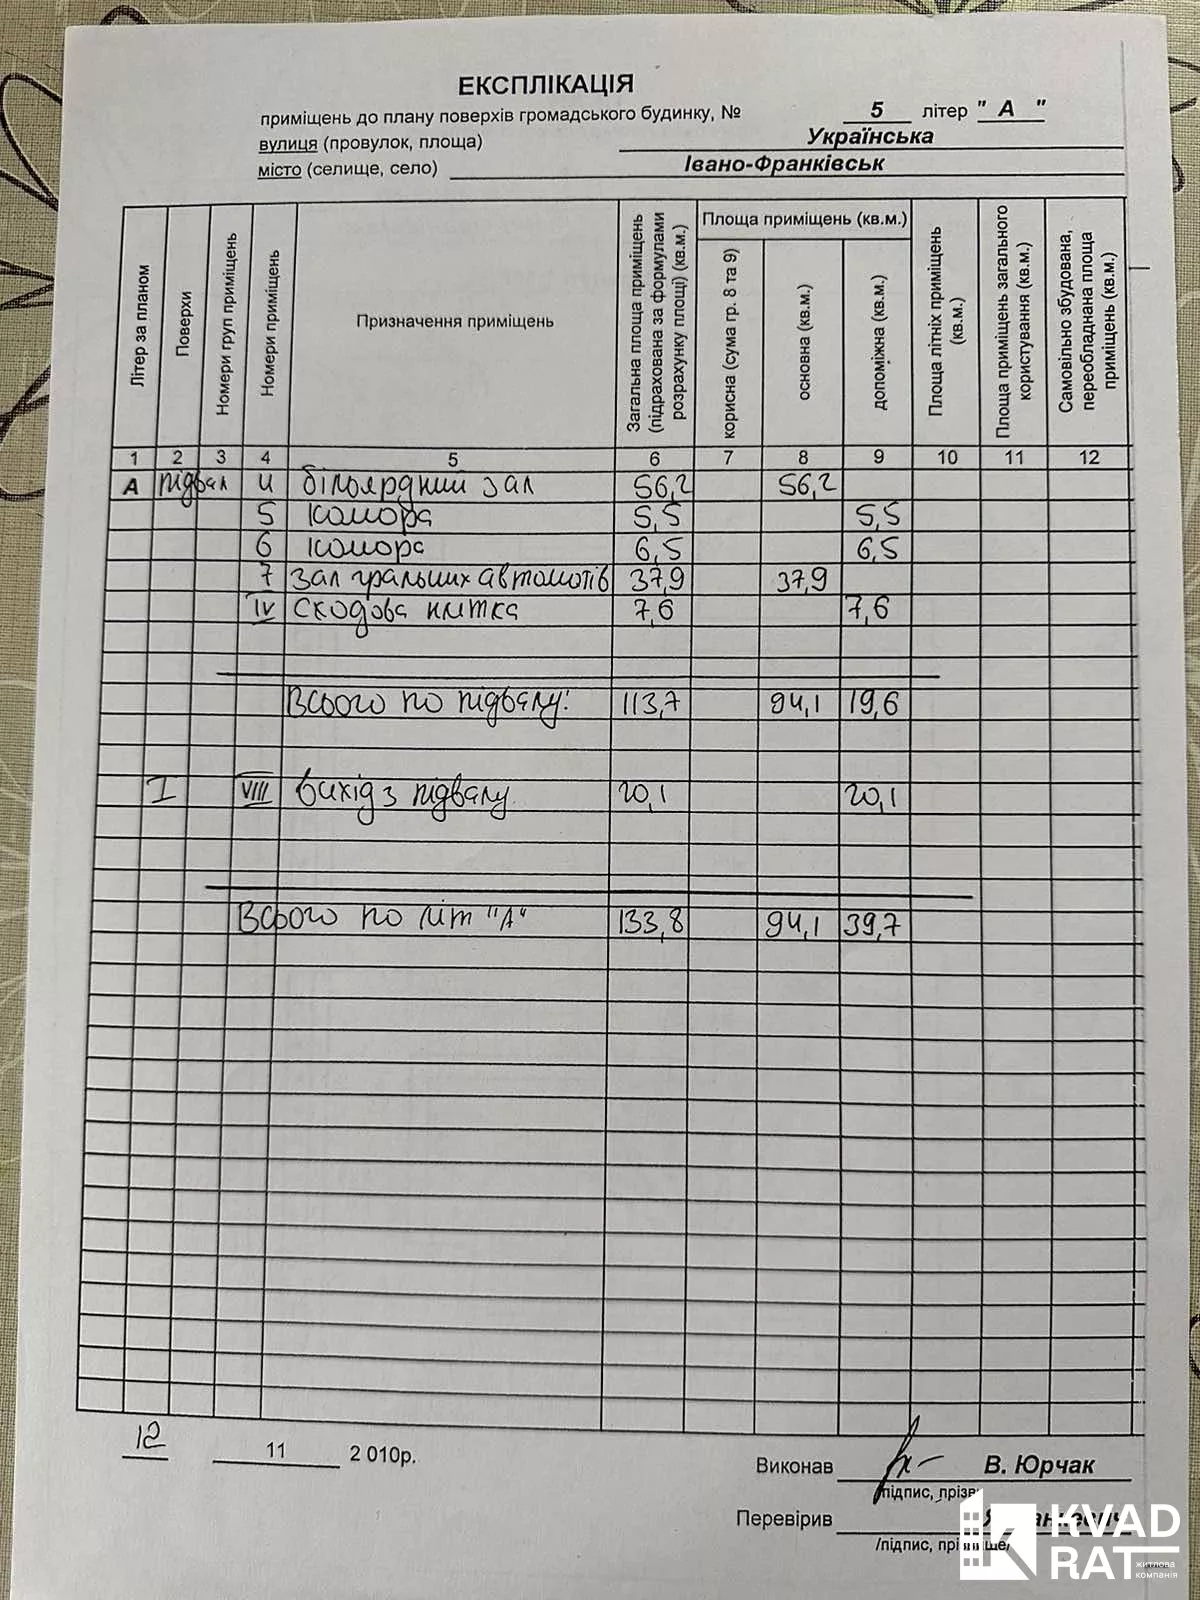 ЕКСПЛІКАЦІЯ
приміщень до плану поверхів громадського будинку, № 5 літер " А "
вулиця (провулок, площа) Українська
місто (селище, село) Івано-Франківськ
Літер за планом
Поверхи
Номери груп приміщень
Номери приміщень
Призначення приміщень
Загальна площа приміщень (підрахована за формулами розрахунку площі) (кв.м.)
Площа приміщень (кв.м.)
корисна (сума гр. 8 та 9)
основна (кв.м.)
допоміжна (кв.м.)
Площа літніх приміщень (кв.м.)
Площа приміщень загального користування (кв.м.)
Самовільно збудована, переобладнана площа приміщень (кв.м.)
1 2 3 4 5 6 7 8 9 10 11 12
А підвал 4 більярдний зал 56,2 56,2
5 комора 5,5 5,5
6 комора 6,5 6,5
7 зал гральних автоматів 37,9 37,9
IV сходова клітка 7,6 7,6
Всього по підвалу: 113,7 94,1 19,6
I VIII вихід з підвалу 20,1 20,1
Всього по літ "А" 133,8 94,1 39,7
12 11 2 010р.
Виконав В. Юрчак
/підпис, прізв
Перевірив
/підпис, прізвище/
KVAD
RAT
житлова
компанія